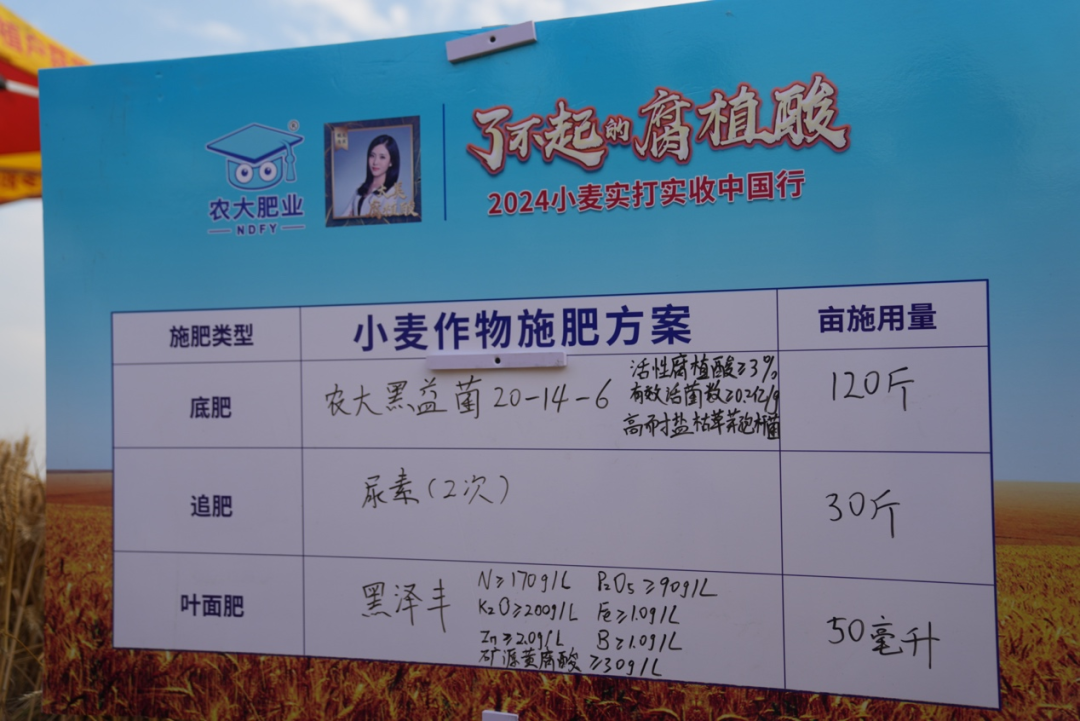 农大肥业
NDFY
了不起的腐植酸
2024小麦实打实收中国行
施肥类型
小麦作物施肥方案
亩施用量
底肥
农大黑益菌 20-14-6
活性腐植酸≥3%,
有效活菌数≥0.2亿/g
高耐盐枯草芽孢杆菌
120斤
追肥
尿素(2次)
30斤
叶面肥
黑泽丰
N≥170g/L P₂O₅≥90g/L
K₂O≥200g/L Fe≥1.0g/L
Zn≥2.0g/L B≥1.0g/L
矿源黄腐酸≥30g/L
50毫升